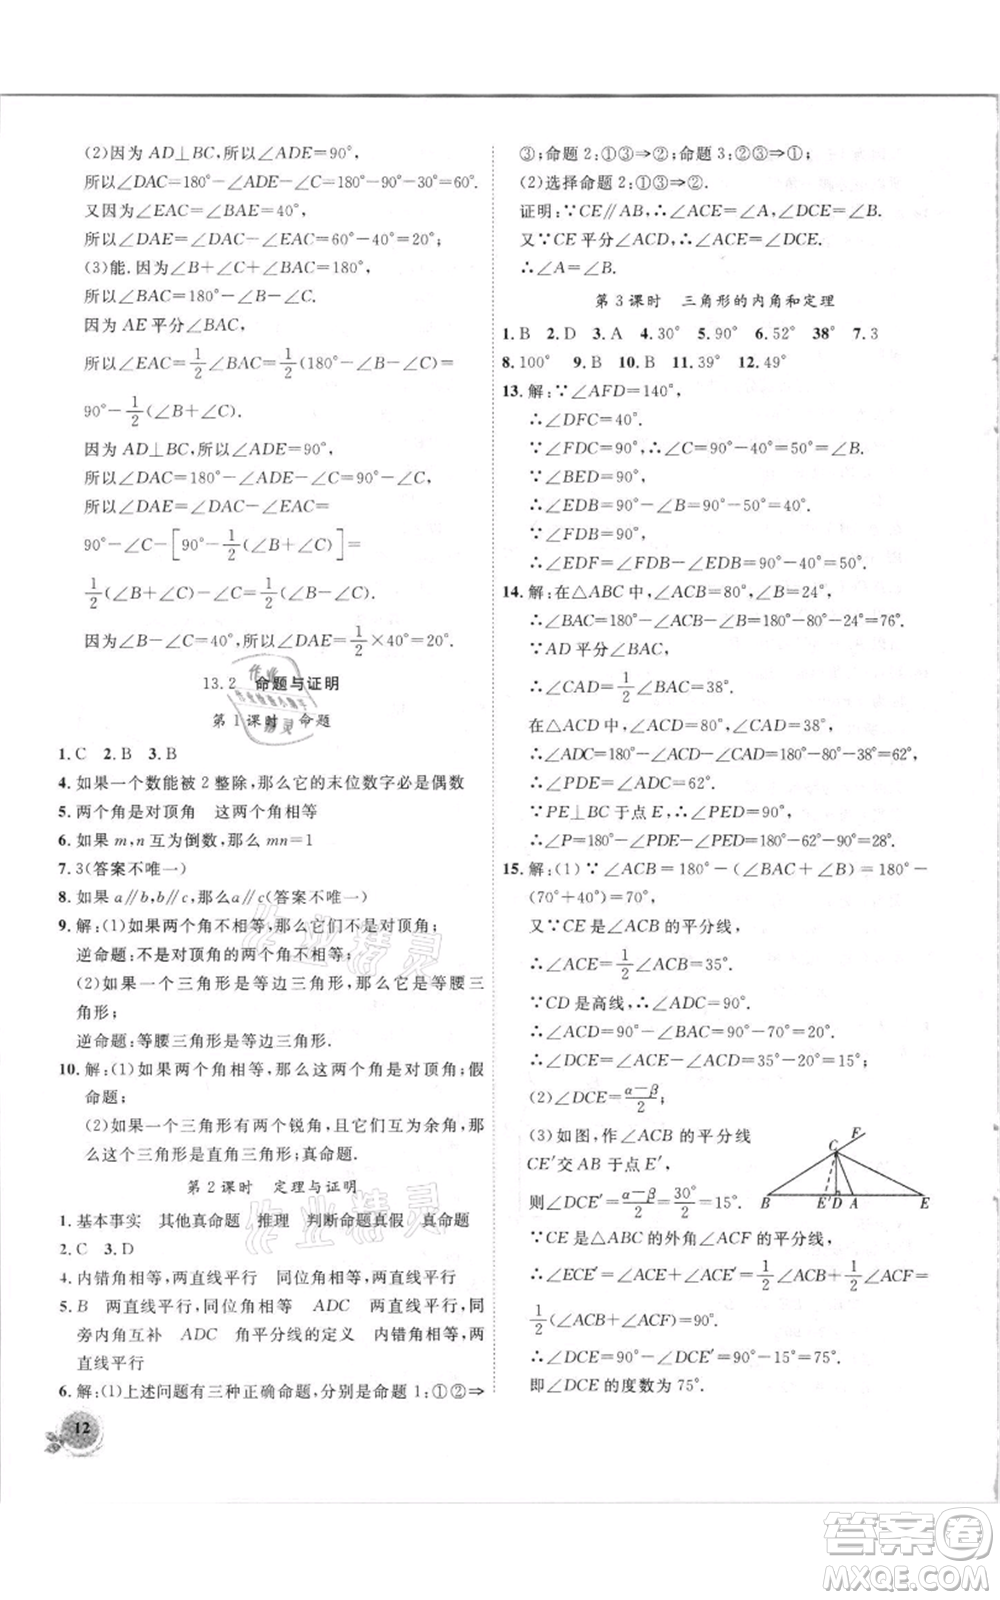 (2)因为 AD⊥BC,所以∠ADE=90°,
所以∠DAC=180°-∠ADE-∠C=180°-90°-30°=60°.
又因为∠EAC=∠BAE=40°,
所以∠DAE=∠DAC-∠EAC=60°-40°=20°;
(3)能.因为∠B+∠C+∠BAC=180°,
所以∠BAC=180°-∠B-∠C.
因为 AE 平分∠BAC,
所以∠EAC=1/2∠BAC=1/2(180°-∠B-∠C)=
90°-1/2(∠B+∠C).
因为 AD⊥BC,所以∠ADE=90°,
所以∠DAC=180°-∠ADE-∠C=90°-∠C,
所以∠DAE=∠DAC-∠EAC=
90°-∠C-[90°-1/2(∠B+∠C)]=
1/2(∠B+∠C)-∠C=1/2(∠B-∠C).
因为∠B-∠C=40°,所以∠DAE=1/2×40°=20°.
13.2 命题与证明
第1课时 命题
1.C 2.B 3.B
4.如果一个数能被2整除,那么它的末位数字必是偶数
5.两个角是对顶角 这两个角相等
6.如果 m,n 互为倒数,那么 mn=1
7.3(答案不唯一)
8.如果 a∥b,b∥c,那么a∥c(答案不唯一)
9.解:(1)如果两个角不相等,那么它们不是对顶角;
逆命题:不是对顶角的两个角不相等.
(2)如果一个三角形是等边三角形,那么它是等腰三
角形;
逆命题:等腰三角形是等边三角形.
10.解:(1)如果两个角相等,那么这两个角是对顶角;假
命题;
(2)如果一个三角形有两个锐角,且它们互为余角,那
么这个三角形是直角三角形;真命题.
第2课时 定理与证明
1.基本事实 其他真命题 推理 判断命题真假 真命题
2.C 3.D
4.内错角相等,两直线平行 同位角相等,两直线平行
5.B 两直线平行,同位角相等 ADC 两直线平行,同
旁内角互补 ADC 角平分线的定义 内错角相等,两
直线平行
6.解:(1)上述问题有三种正确命题,分别是命题1:①②⇒
12
③;命题2:①③⇒②;命题3:②③⇒①;
(2)选择命题2:①③⇒②.
证明:∵CE∥AB,∴∠ACE=∠A,∠DCE=∠B.
又∵CE 平分∠ACD,∴∠ACE=∠DCE.
∴∠A=∠B.
第3课时 三角形的内角和定理
1.B 2.D 3.A 4.30° 5.90° 6.52° 38° 7.3
8.100° 9.B 10.B 11.39° 12.49°
13.解:∵∠AFD=140°,
∴∠DFC=40°.
∵∠FDC=90°,∴∠C=90°-40°=50°=∠B.
∵∠BED=90°,
∴∠EDB=90°-∠B=90°-50°=40°.
∵∠FDB=90°,
∴∠EDF=∠FDB-∠EDB=90°-40°=50°.
14.解:在△ABC 中,∠ACB=80°,∠B=24°,
∴∠BAC=180°-∠ACB-∠B=180°-80°-24°=76°.
∵AD 平分∠BAC,
∴∠CAD=1/2∠BAC=38°.
在△ACD 中,∠ACD=80°,∠CAD=38°,
∴∠ADC=180°-∠ACD-∠CAD=180°-80°-38°=62°,
∴∠PDE=∠ADC=62°.
∵PE⊥BC 于点 E,∴∠PED=90°,
∴∠P=180°-∠PDE-∠PED=180°-62°-90°=28°.
15.解:(1)∵∠ACB=180°-(∠BAC+∠B)=180°-
(70°+40°)=70°,
又∵CE 是∠ACB 的平分线,
∴∠ACE=1/2∠ACB=35°.
∵CD 是高线,∴∠ADC=90°.
∴∠ACD=90°-∠BAC=90°-70°=20°,
∴∠DCE=∠ACE-∠ACD=35°-20°=15°;
(2)∠DCE=α-β/2
(3)如图,作∠ACB 的平分线
CE′交 AB 于点 E′,
则∠DCE′=α-β/2=30°/2=15°.
∵CE 是△ABC 的外角∠ACF 的平分线,
∴∠ECE′=∠ACE+∠ACE′=1/2∠ACB+1/2∠ACF=
1/2(∠ACB+∠ACF)=90°.
∴∠DCE=90°-∠DCE′=90°-15°=75°.
即∠DCE 的度数为75°.
F
C
B
E′
D
A
E
作业精灵
作业精灵
答案圈
MXQE.COM